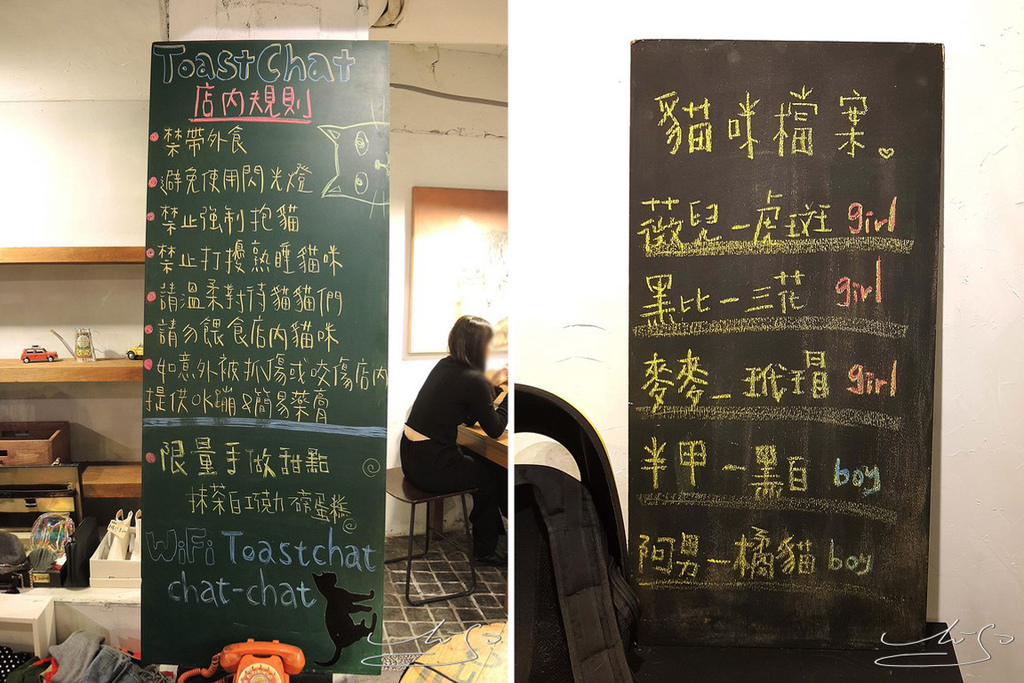 ToastChat
店內規則
禁帶外食
避免使用閃光燈
禁止強制抱貓
禁止打擾熟睡貓咪
請溫柔對待貓貓們
請勿餵食店內貓咪
如意外被抓傷或咬傷店內
提供OK蹦&簡易藥膏
限量手做甜點
抹茶白巧克力磅蛋糕
WiFi Toastchat
chat-chat
貓咪檔案
薇兒-虎斑 girl
黑比-三花 girl
麥麥-玳瑁 girl
半甲-黑白 boy
阿男-橘貓 boy